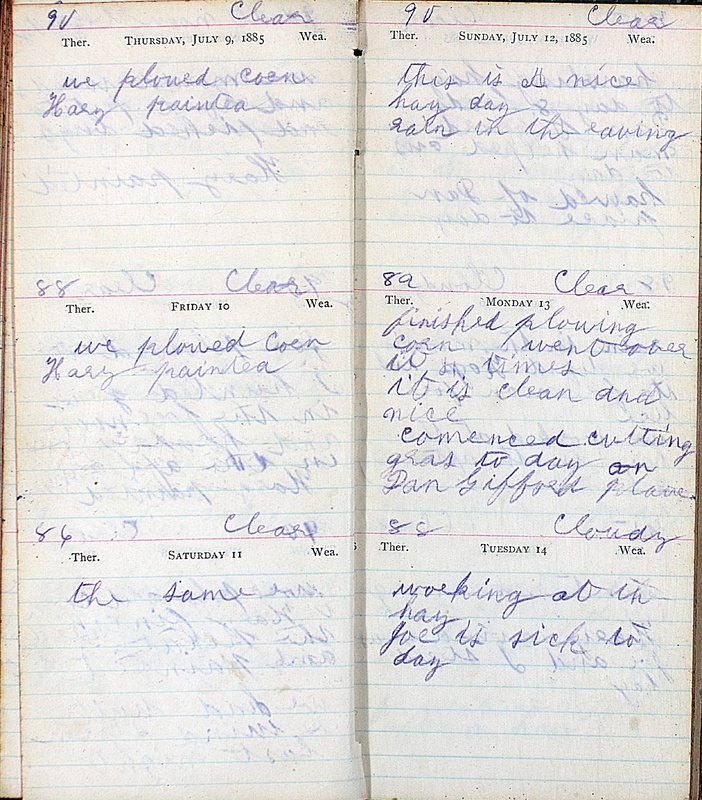 90 Clear
Ther. THURSDAY, JULY 9, 1885 Wea.
we plowed corn
Hary painted
88 Clear
Ther. FRIDAY 10 Wea.
we plowed corn
Hary painted
86 Clear
Ther. SATURDAY 11 Wea.
the same
90 Clear
Ther. SUNDAY, JULY 12, 1885 Wea.
this is a nice
hay day
rain in the eaving
89 Clear
Ther. MONDAY 13 Wea.
finished plowing
corn went over
it times
it is clean and
nice
comenced cutting
gras to day on
Dan Gifford place
88 Cloudy
Ther. TUESDAY 14 Wea.
working at in
hay
Joe is sick to
day